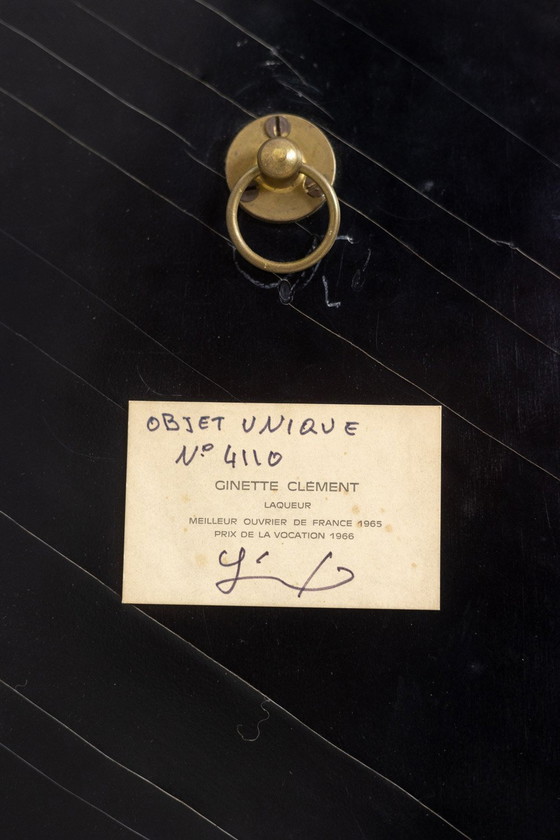 OBJET UNIQUE
Nº 4110
GINETTE CLÉMENT
LAQUEUR
MEILLEUR OUVRIER DE FRANCE 1965
PRIX DE LA VOCATION 1966